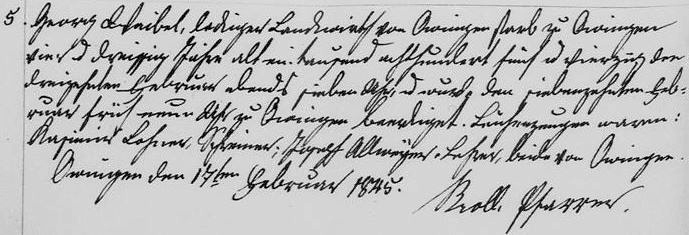 5. Georg Waibel, lediger Landwirth von Owingen starb zu Owingen
vier u dreissig Jahre alt ein tausend achthundert fünf u vierzig den
dreizehnten Februar abends sieben Uhr, u wurde den siebenzehnten Feb-
ruar früh neun Uhr zu Owingen beerdiget. Leichenzeugen waren:
Kasimir Lohner, Schreiner; Joseph Allweyer, Lehrer, beide von Owingen.
Owingen den 17ten Februar 1845.
Pfarrer.